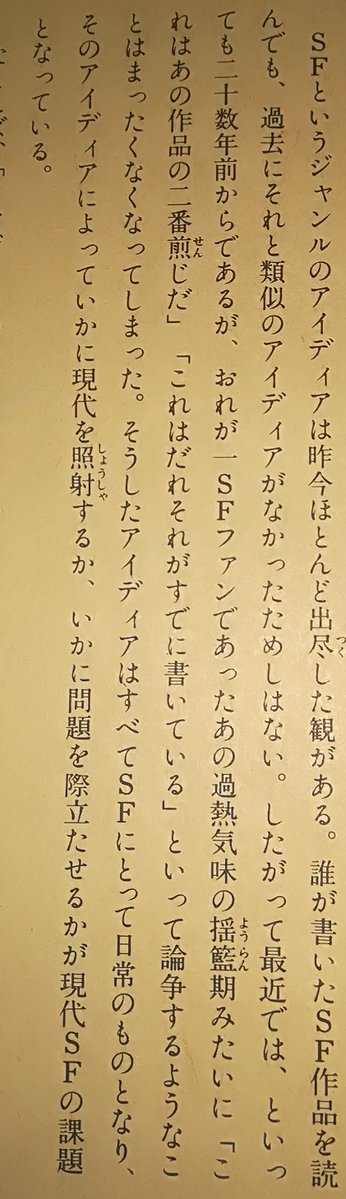 SFというジャンルのアイディアは昨今ほとんど出尽した観がある。誰が書いたSF作品を読
んでも、過去にそれと類似のアイディアがなかったためしはない。したがって最近では、といっ
ても二十数年前からであるが、おれが一SFファンであったあの過熱気味の揺籃期みたいに「こ
れはあの作品の二番煎じだ」「これはだれそれがすでに書いている」といって論争するようなこ
とはまったくなくなってしまった。そうしたアイディアはすべてSFにとって日常のものとなり、
そのアイディアによっていかに現代を照射するか、いかに問題を際立たせるかが現代SFの課題
となっている。